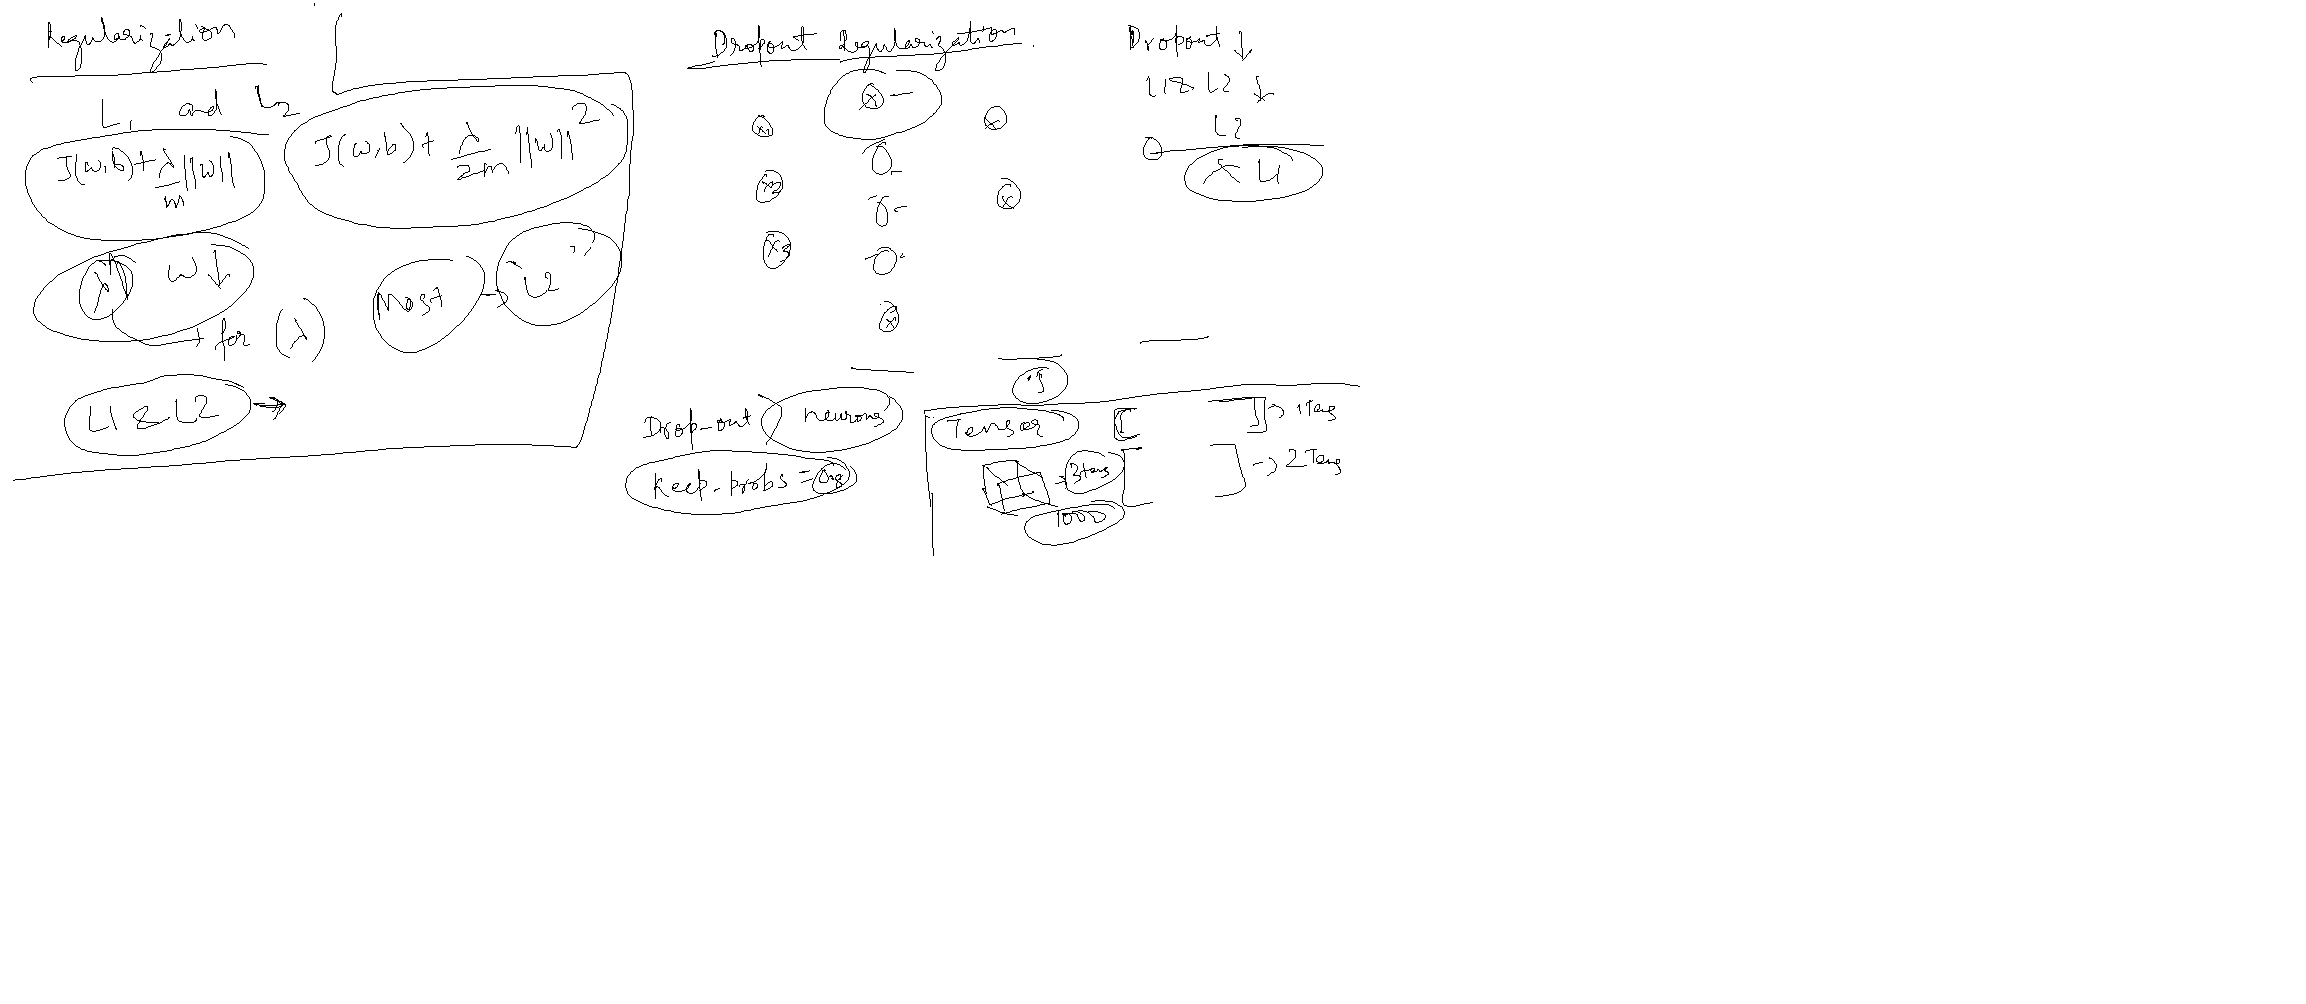 Regularization
L1 and L2
J(w,b) + λ/m ||w||
J(w,b) + λ/2m ||w||²
λ w ↓
→ for (λ)
Most → "L2"
L1 & L2 →
Dropout Regularization
x1
x2
x3
Drop-out neurons
Keep-probs = 0.8
Dropout ↓
L1 & L2 ↓
L2
L1
Tensor
[ ] → 1 Tens
[ ] → 2 Tens
→ 3 tens
1000